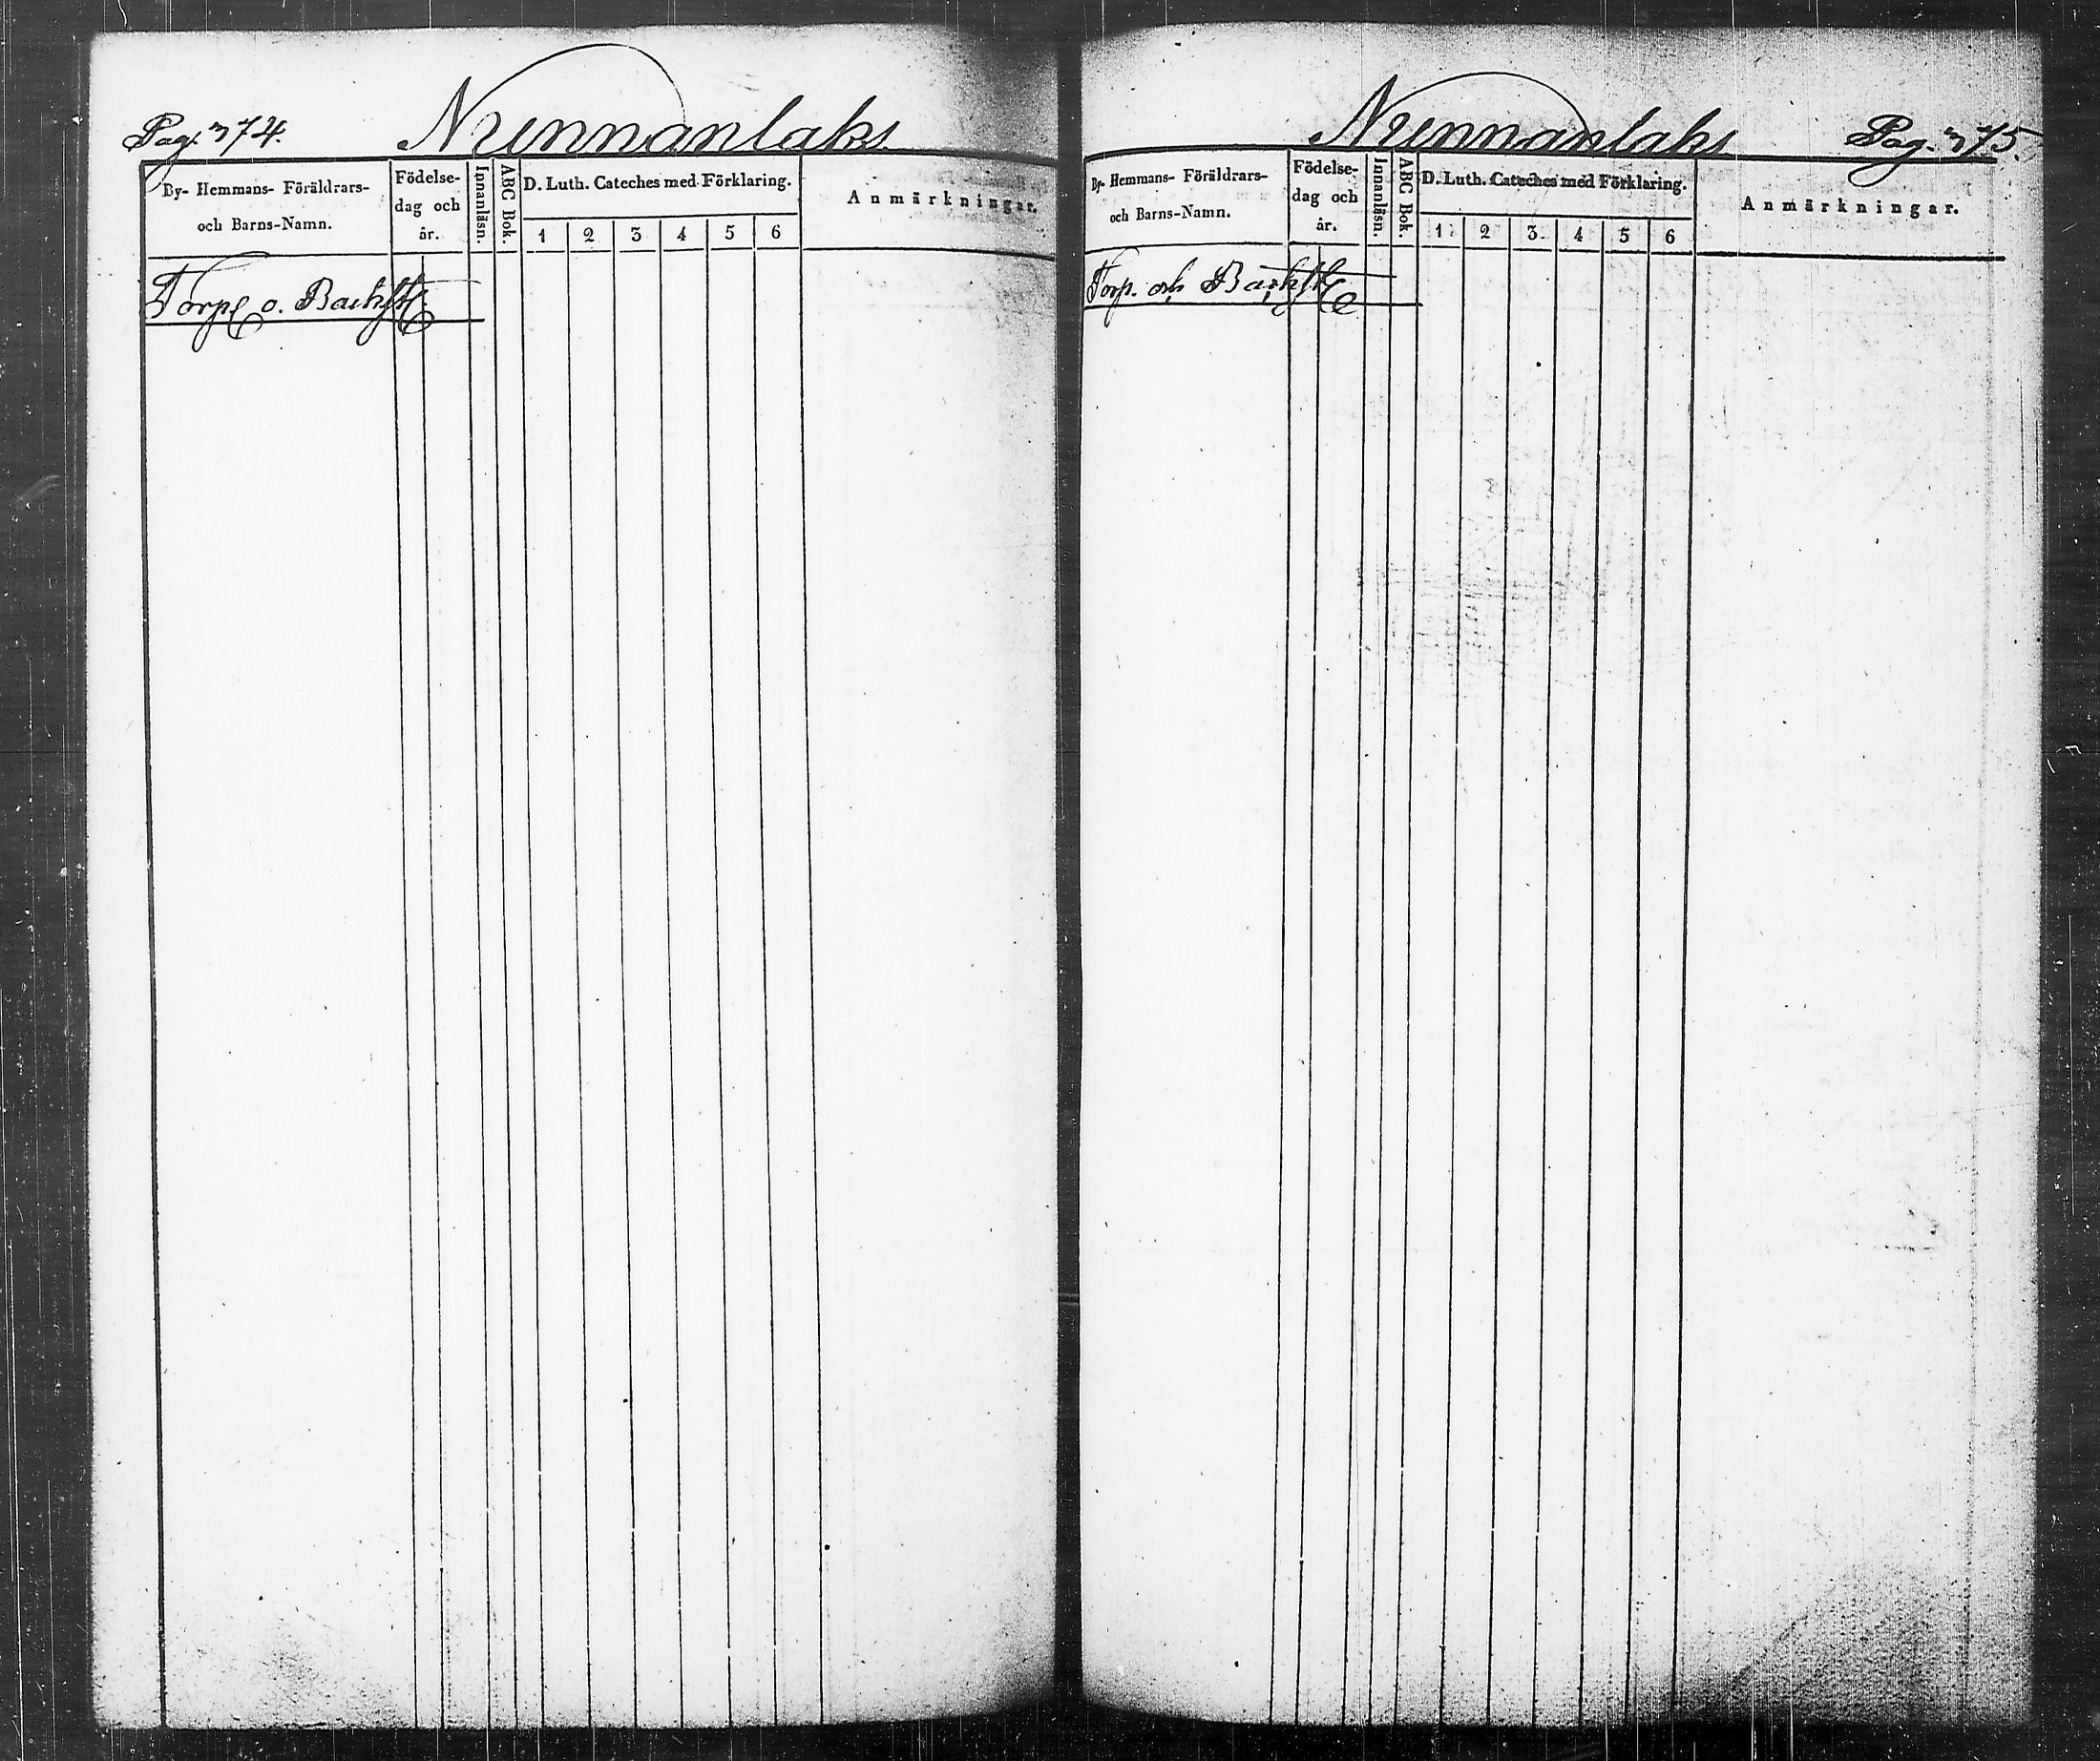 Pag. 374. Nunnanlaks.
By- Hemmans- Föräldrars- och Barns-Namn.
Födelse- dag och år.
Innanläsn.
ABC Bok.
D. Luth. Cateches med Förklaring.
1 2 3 4 5 6
Anmärkningar.
Torp. o. Backst.
Nunnanlaks Pag. 375.
By- Hemmans- Föräldrars- och Barns-Namn.
Födelse- dag och år.
Innanläsn.
ABC Bok.
D. Luth. Cateches med Förklaring.
1 2 3 4 5 6
Anmärkningar.
Torp. och Backst.